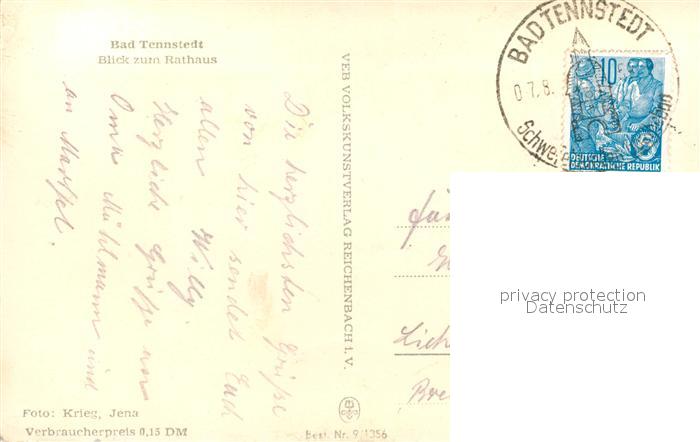 Bad Tennstedt
Blick zum Rathaus
Die herzlichsten Grüße
von hier sendet Euch
allen Willy.
Herzliche Grüße von
Oma Mühlmann und
an
VEB VOLKSKUNSTVERLAG REICHENBACH I. V.
BAD TENNSTEDT
07.8.
10
DEUTSCHE
DEMOKRATISCHE REPUBLIK
privacy protection
Datenschutz
Foto: Krieg, Jena
Verbraucherpreis 0,15 DM
Best. Nr. 9/1356